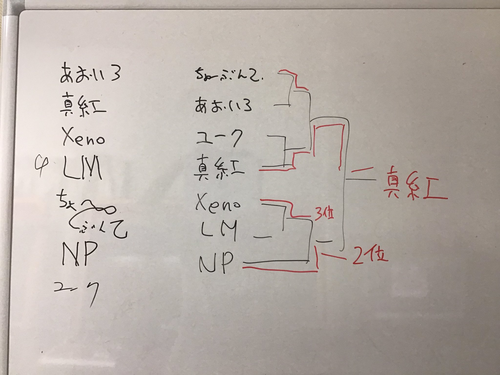 あおいろ
真紅
Xeno
LM
NP
ユーク
ちゅーぶんて
あおいろ
ユーク
真紅
Xeno
LM
NP
3位
2位
真紅